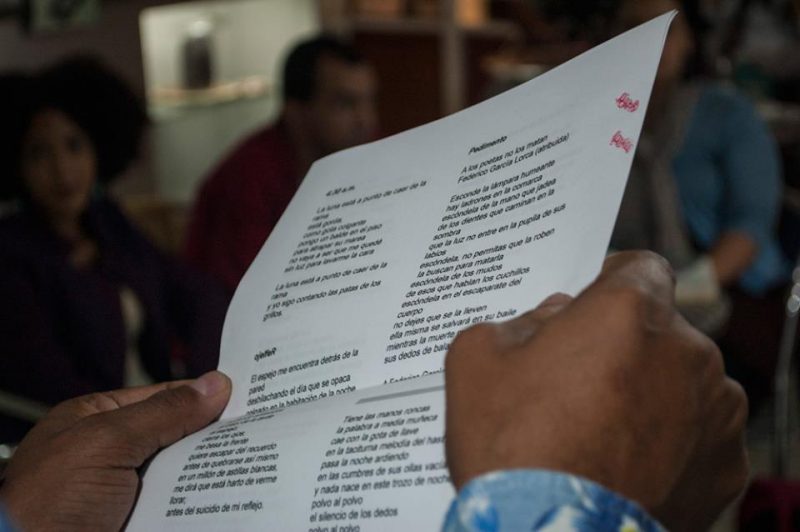 4:30 a.m.
La luna está a punto de caer de la
rama
está gorda
como gota colgante
pongo un balde en el piso
para atrapar su marea
no vaya a ser que me quedé
sin luz para lavarme la cara
La luna está a punto de caer de la
rama
y yo sigo contando las patas de los
grillos.
ojelfeR
El espejo me encuentra detrás de la
pared
deshilachando el día que se opaca
colgado en la habitación de la noche
cierre los ojos,
me besa la frente
quiere escapar del recuerdo
antes de quebrarse así mismo
en un millón de astillas blancas,
me dirá que está harto de verme
llorar,
antes del suicidio de mi reflejo.
Pedimento
A los poetas no los matan
Federico García Lorca (atribuida)
Esconde la lámpara humeante
hay ladrones en la comarca
escóndela de la mano que jadea
de los dientes que caminan en la
sombra
que la luz no entre en la pupila de sus
labios
escóndela, no permitas que la roben
la buscan para matarla
escóndela de los mudos
de esos que hablan los cuchillos
escóndela en el escaparate del
cuerpo
no dejes que se la lleven
ella misma se salvará en su baile
mientras la muerte
sus dedos de bala
A Federico García
Tiene las manos roncas
la palabra a media muñeca
cae con la gota de llave
en la taciturna melodía del
pasa la noche ardiendo
en las cumbres de sus ollas
y nada nace en este trozo de
polvo al polvo
el silencio de los dedos
polvo al polvo